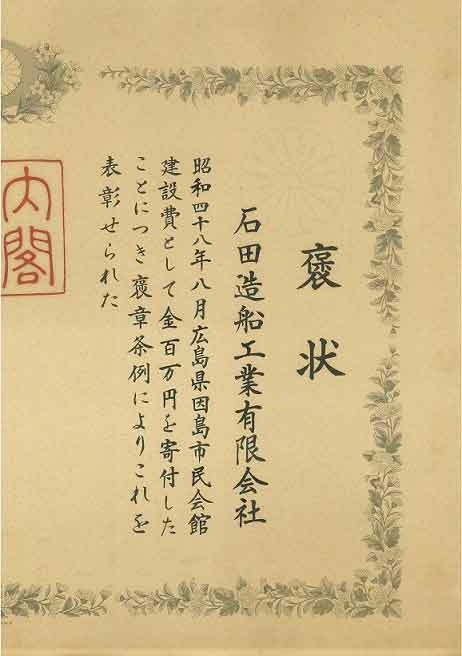 褒状
石田造船工業有限会社
昭和四十八年八月広島県因島市民会館
建設費として金百万円を寄付した
ことにつき褒章条例によりこれを
表彰せられた
内閣